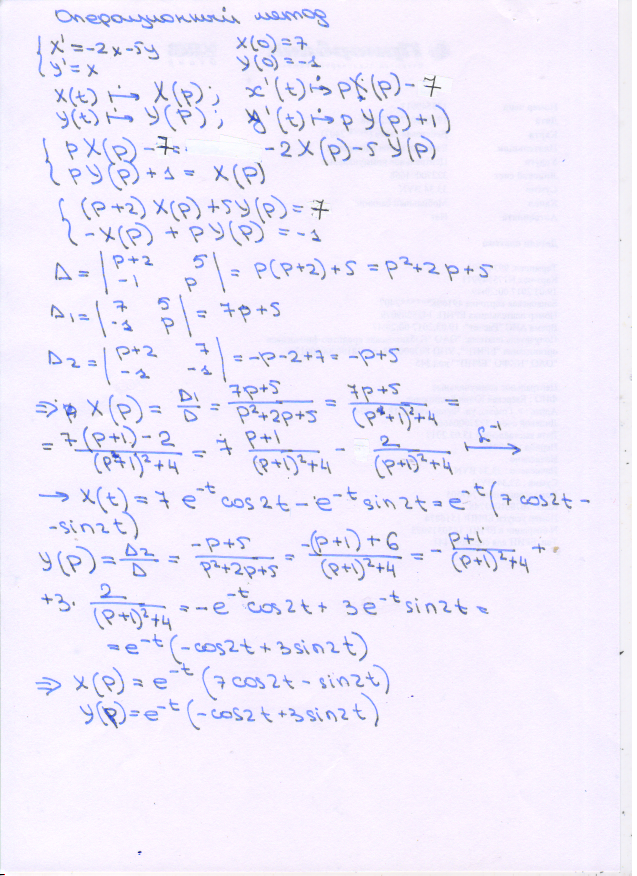 Операционный метод
{ x' = -2x - 5y    x(0) = 7
{ y' = x    y(0) = -1
x(t) ↦ X(p);    x'(t) ↦ pX(p) - 7
y(t) ↦ Y(p);    y'(t) ↦ pY(p) + 1)
{ pX(p) - 7 =    -2X(p) - 5Y(p)
{ pY(p) + 1 = X(p)
{ (p+2)X(p) + 5Y(p) = 7
{ -X(p) + pY(p) = -1
Δ = | p+2  5 ; -1  p | = p(p+2) + 5 = p² + 2p + 5
Δ1 = | 7  5 ; -1  p | = 7p + 5
Δ2 = | p+2  7 ; -1  -1 | = -p - 2 + 7 = -p + 5
⇒ X(p) = Δ1/Δ = (7p+5)/(p²+2p+5) = (7p+5)/((p+1)²+4) =
= (7(p+1) - 2)/((p+1)²+4) = 7 (p+1)/((p+1)²+4) - 2/((p+1)²+4) ↦ L⁻¹
→ x(t) = 7e^-t cos2t - e^-t sin2t = e^-t (7cos2t -
- sin2t)
Y(p) = Δ2/Δ = (-p+5)/(p²+2p+5) = (-(p+1)+6)/((p+1)²+4) = - (p+1)/((p+1)²+4) +
+ 3 · 2/((p+1)²+4) = -e^-t cos2t + 3e^-t sin2t =
= e^-t (-cos2t + 3sin2t)
⇒ X(p) = e^-t (7cos2t - sin2t)
Y(p) = e^-t (-cos2t + 3sin2t)